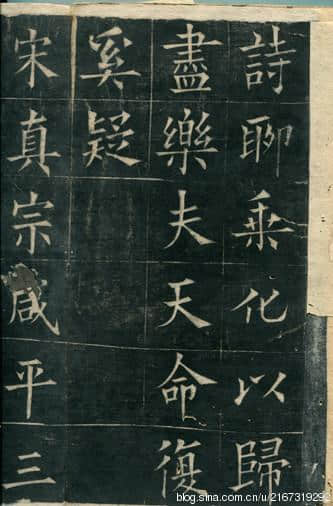 詩聊乘化以歸
盡樂夫天命復
奚疑
宋真宗咸平三
blog.sina.com.cn/u/2167319292